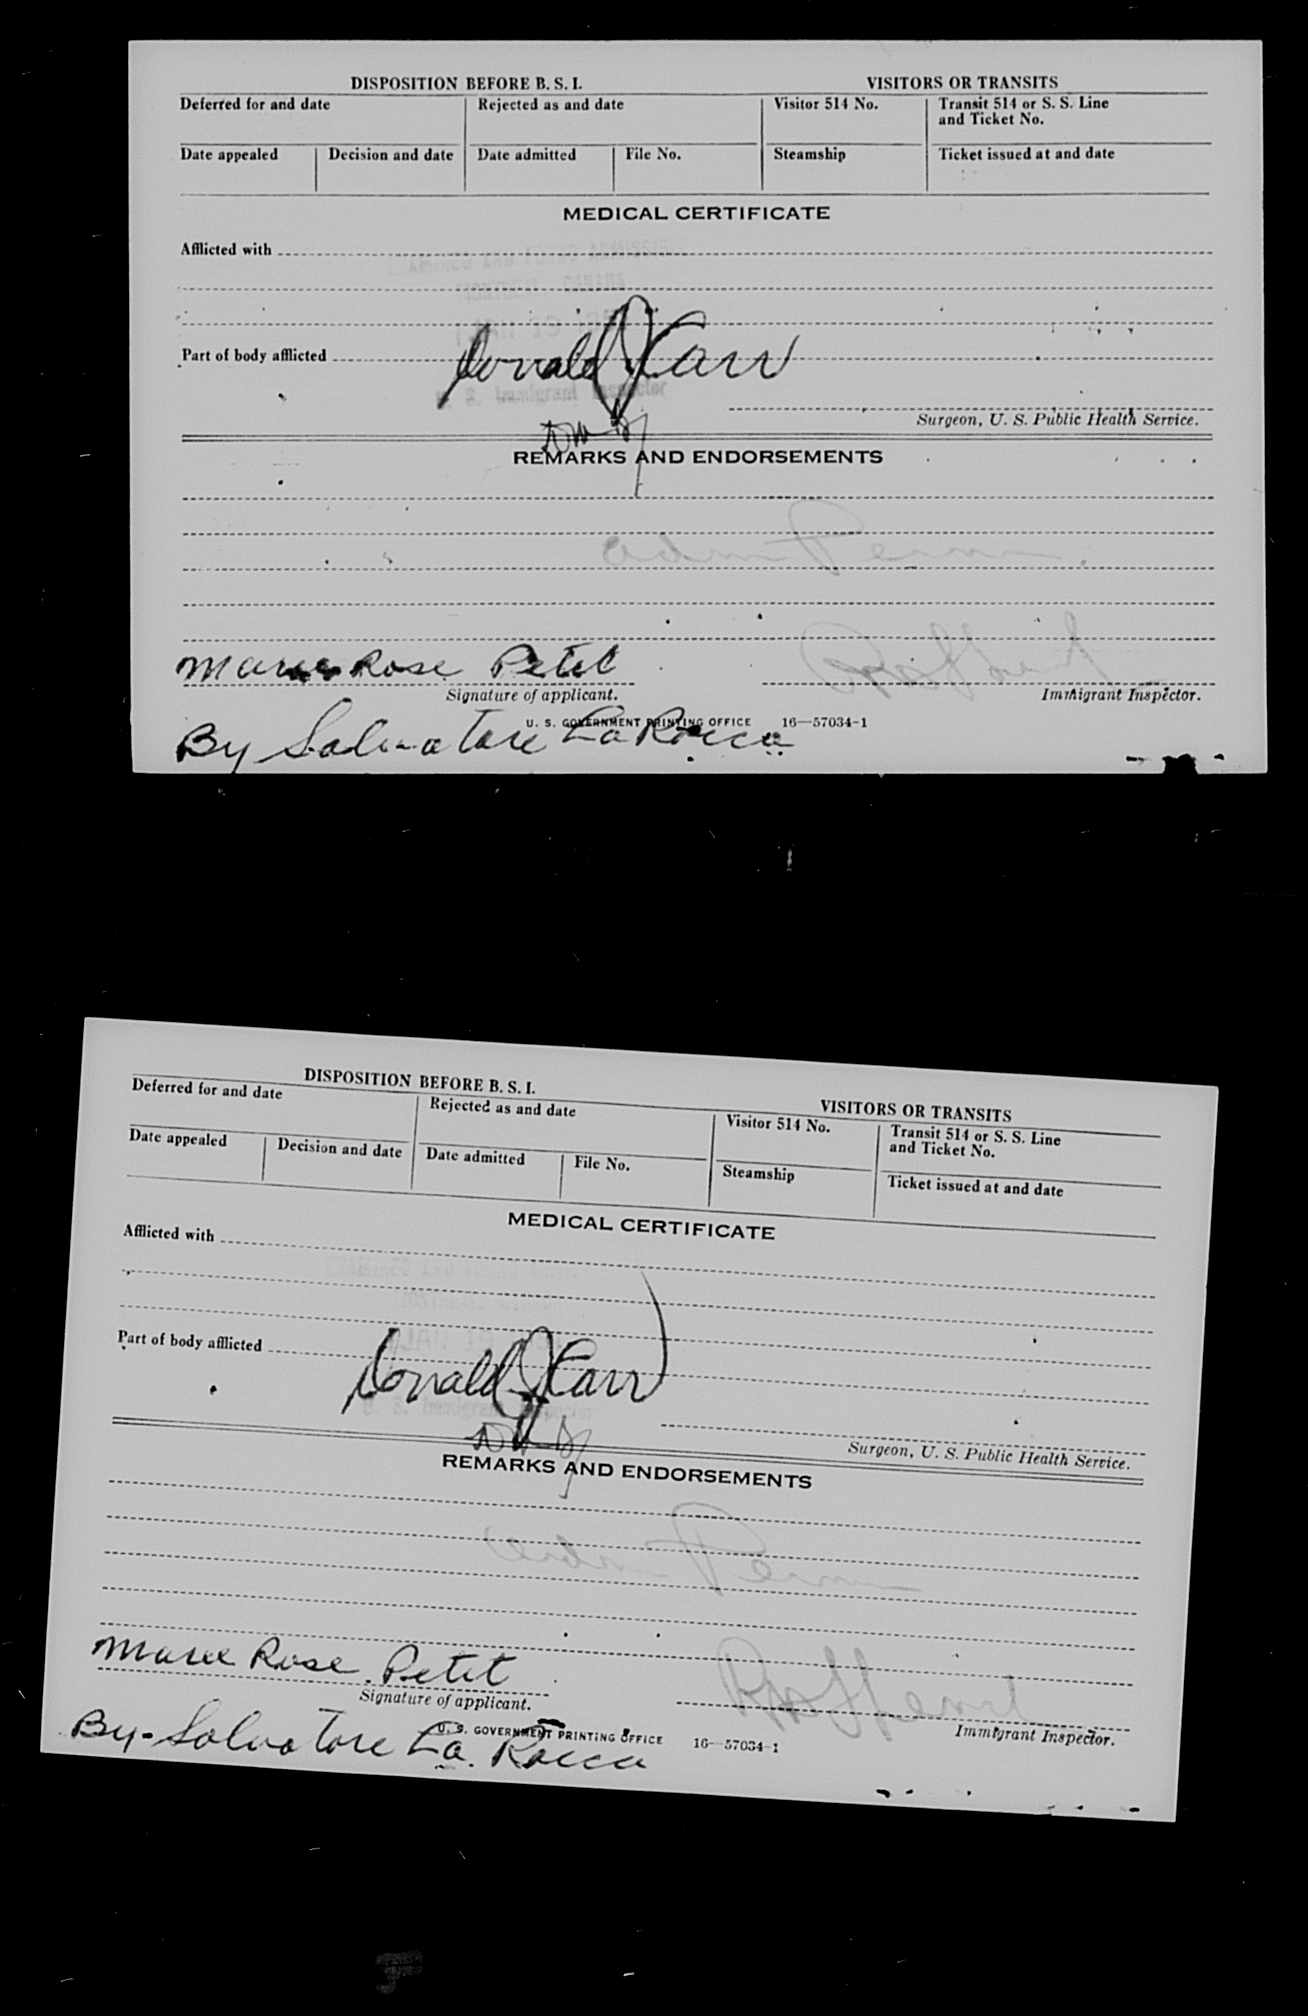 DISPOSITION BEFORE B. S. I. VISITORS OR TRANSITS
Deferred for and date Rejected as and date Visitor 514 No. Transit 514 or S. S. Line
and Ticket No.
Date appealed Decision and date Date admitted File No. Steamship Ticket issued at and date
MEDICAL CERTIFICATE
Afflicted with
Part of body afflicted Donald J Carr
U. S. Immigrant Inspector
Surgeon, U. S. Public Health Service.
REMARKS AND ENDORSEMENTS
Marie Rose Petit
Signature of applicant. Immigrant Inspector.
U. S. GOVERNMENT PRINTING OFFICE 16—57034-1
By Salvatore La Rocca
DISPOSITION BEFORE B. S. I. VISITORS OR TRANSITS
Deferred for and date Rejected as and date Visitor 514 No. Transit 514 or S. S. Line
and Ticket No.
Date appealed Decision and date Date admitted File No. Steamship Ticket issued at and date
MEDICAL CERTIFICATE
Afflicted with
Part of body afflicted Donald J Carr
U. S. Immigrant Inspector
Surgeon, U. S. Public Health Service.
REMARKS AND ENDORSEMENTS
Marie Rose Petit
Signature of applicant. Immigrant Inspector.
U. S. GOVERNMENT PRINTING OFFICE 16—57034-1
By-Salvatore La. Rocca